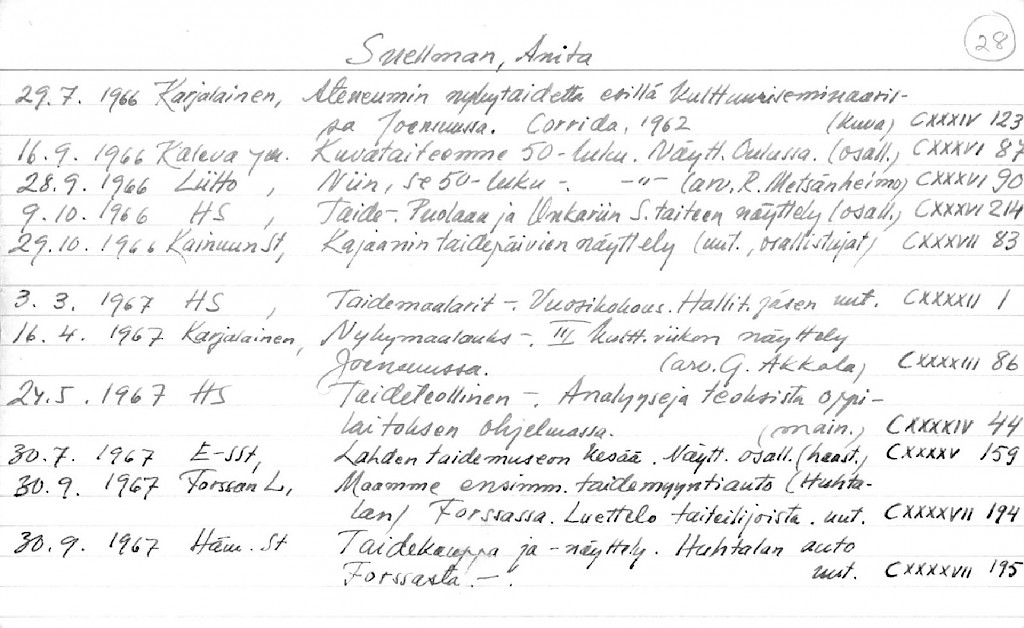 28
Snellman, Anita
29.7. 1966 Karjalainen, Ateneumin nykytaidetta esillä kulttuuriseminaaris-
sa Joensuussa. Corrida, 1962 (kuva) CXXXIV 123
16.9. 1966 Kaleva ym. Kuvataiteemme 50-luku. Näytt. Oulussa. (osall.) CXXXVI 87
28.9. 1966 Liitto , Niin, se 50-luku -. -"- (arv. R. Metsänheimo) CXXXVI 90
9.10. 1966 HS , Taide-. Puolaan ja Unkariin S. taiteen näyttely (osall.) CXXXVI 214
29.10. 1966 Kainuun St, Kajaanin taidepäivien näyttely (uut., osallistujat) CXXXVII 83
3.3. 1967 HS , Taidemaalarit -. Vuosikokous. Hallit. jäsen uut. CXXXXII 1
16.4. 1967 Karjalainen, Nykymaalaus -. III kultt.viikon näyttely
Joensuussa. (arv. G. Akkola) CXXXXIII 86
24.5. 1967 HS Taideteollinen -. Analyysejä teoksista oppi-
laitoksen ohjelmassa. (main.) CXXXXIV 44
30.7. 1967 E-SSt, Lahden taidemuseon kesää. Näytt. osall. (haast.) CXXXXV 159
30.9. 1967 Forssan L, Maamme ensimm. taidemyyntiauto (Huhta-
lan) Forssassa. Luettelo taiteilijoista. uut. CXXXXVII 194
30.9. 1967 Häm. St Taidekauppa ja -näyttely. Huhtalan auto
Forssasta -. uut. CXXXXVII 195